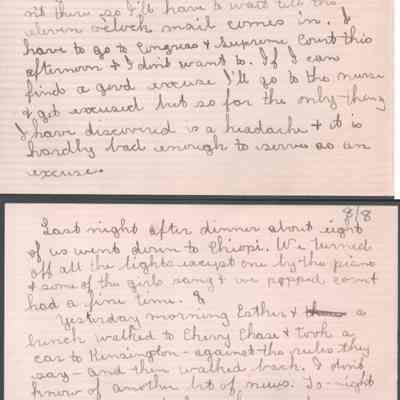 sit there so I'll have to wait till the
eleven o'clock mail comes in. I
have to go to Congress & Supreme Court this
afternoon & I don't want to. If I can
find a good excuse I'll go to the nurse
& get excused but so far the only thing
I have discovered is a headache & it is
hardly bad enough to serve as an
excuse.
8/8
Last night after dinner about eight
of us went down to Chiopi. We turned
off all the lights except one by the piano
& some of the girls sang & we popped corn &
had a fine time.
Yesterday morning Esther & a
bunch walked to Chevy Chase & took a
car to Kensington - against the rules they
say - and then walked back. I don't
know of another bit of news. To-night